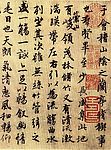 于會稽山陰之蘭亭脩稧事
也群賢畢至少長咸集此地
有崇山峻領茂林脩竹又有清流激
湍映帶左右引以為流觴曲水
列坐其次雖無絲竹管弦之
盛一觴一詠亦足以暢敘幽情
是日也天朗氣清惠風和暢仰